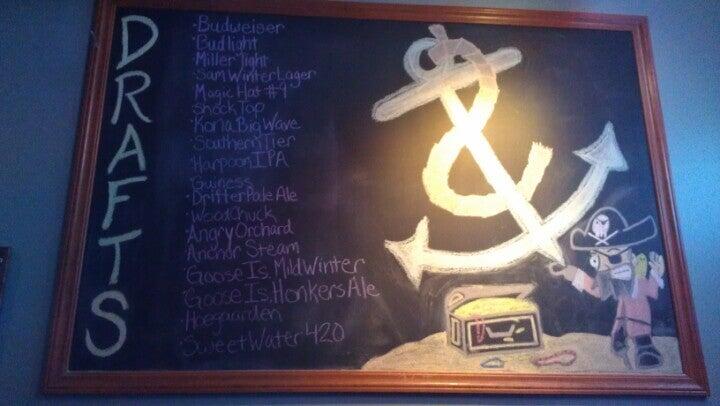 DRAFTS
·Budweiser
·Budlight
·Miller light
·Sam Winter Lager
Magic Hat #9
·Shock Top
·Kona Big Wave
·Southern Tier
·Harpoon IPA
·Guiness
·Drifter Pale Ale
·WoodChuck
·Angry Orchard
Anchor Steam
·Goose Is. Mild Winter
·Goose Is. Honkers Ale
·Hoegaarden
·Sweet Water 420